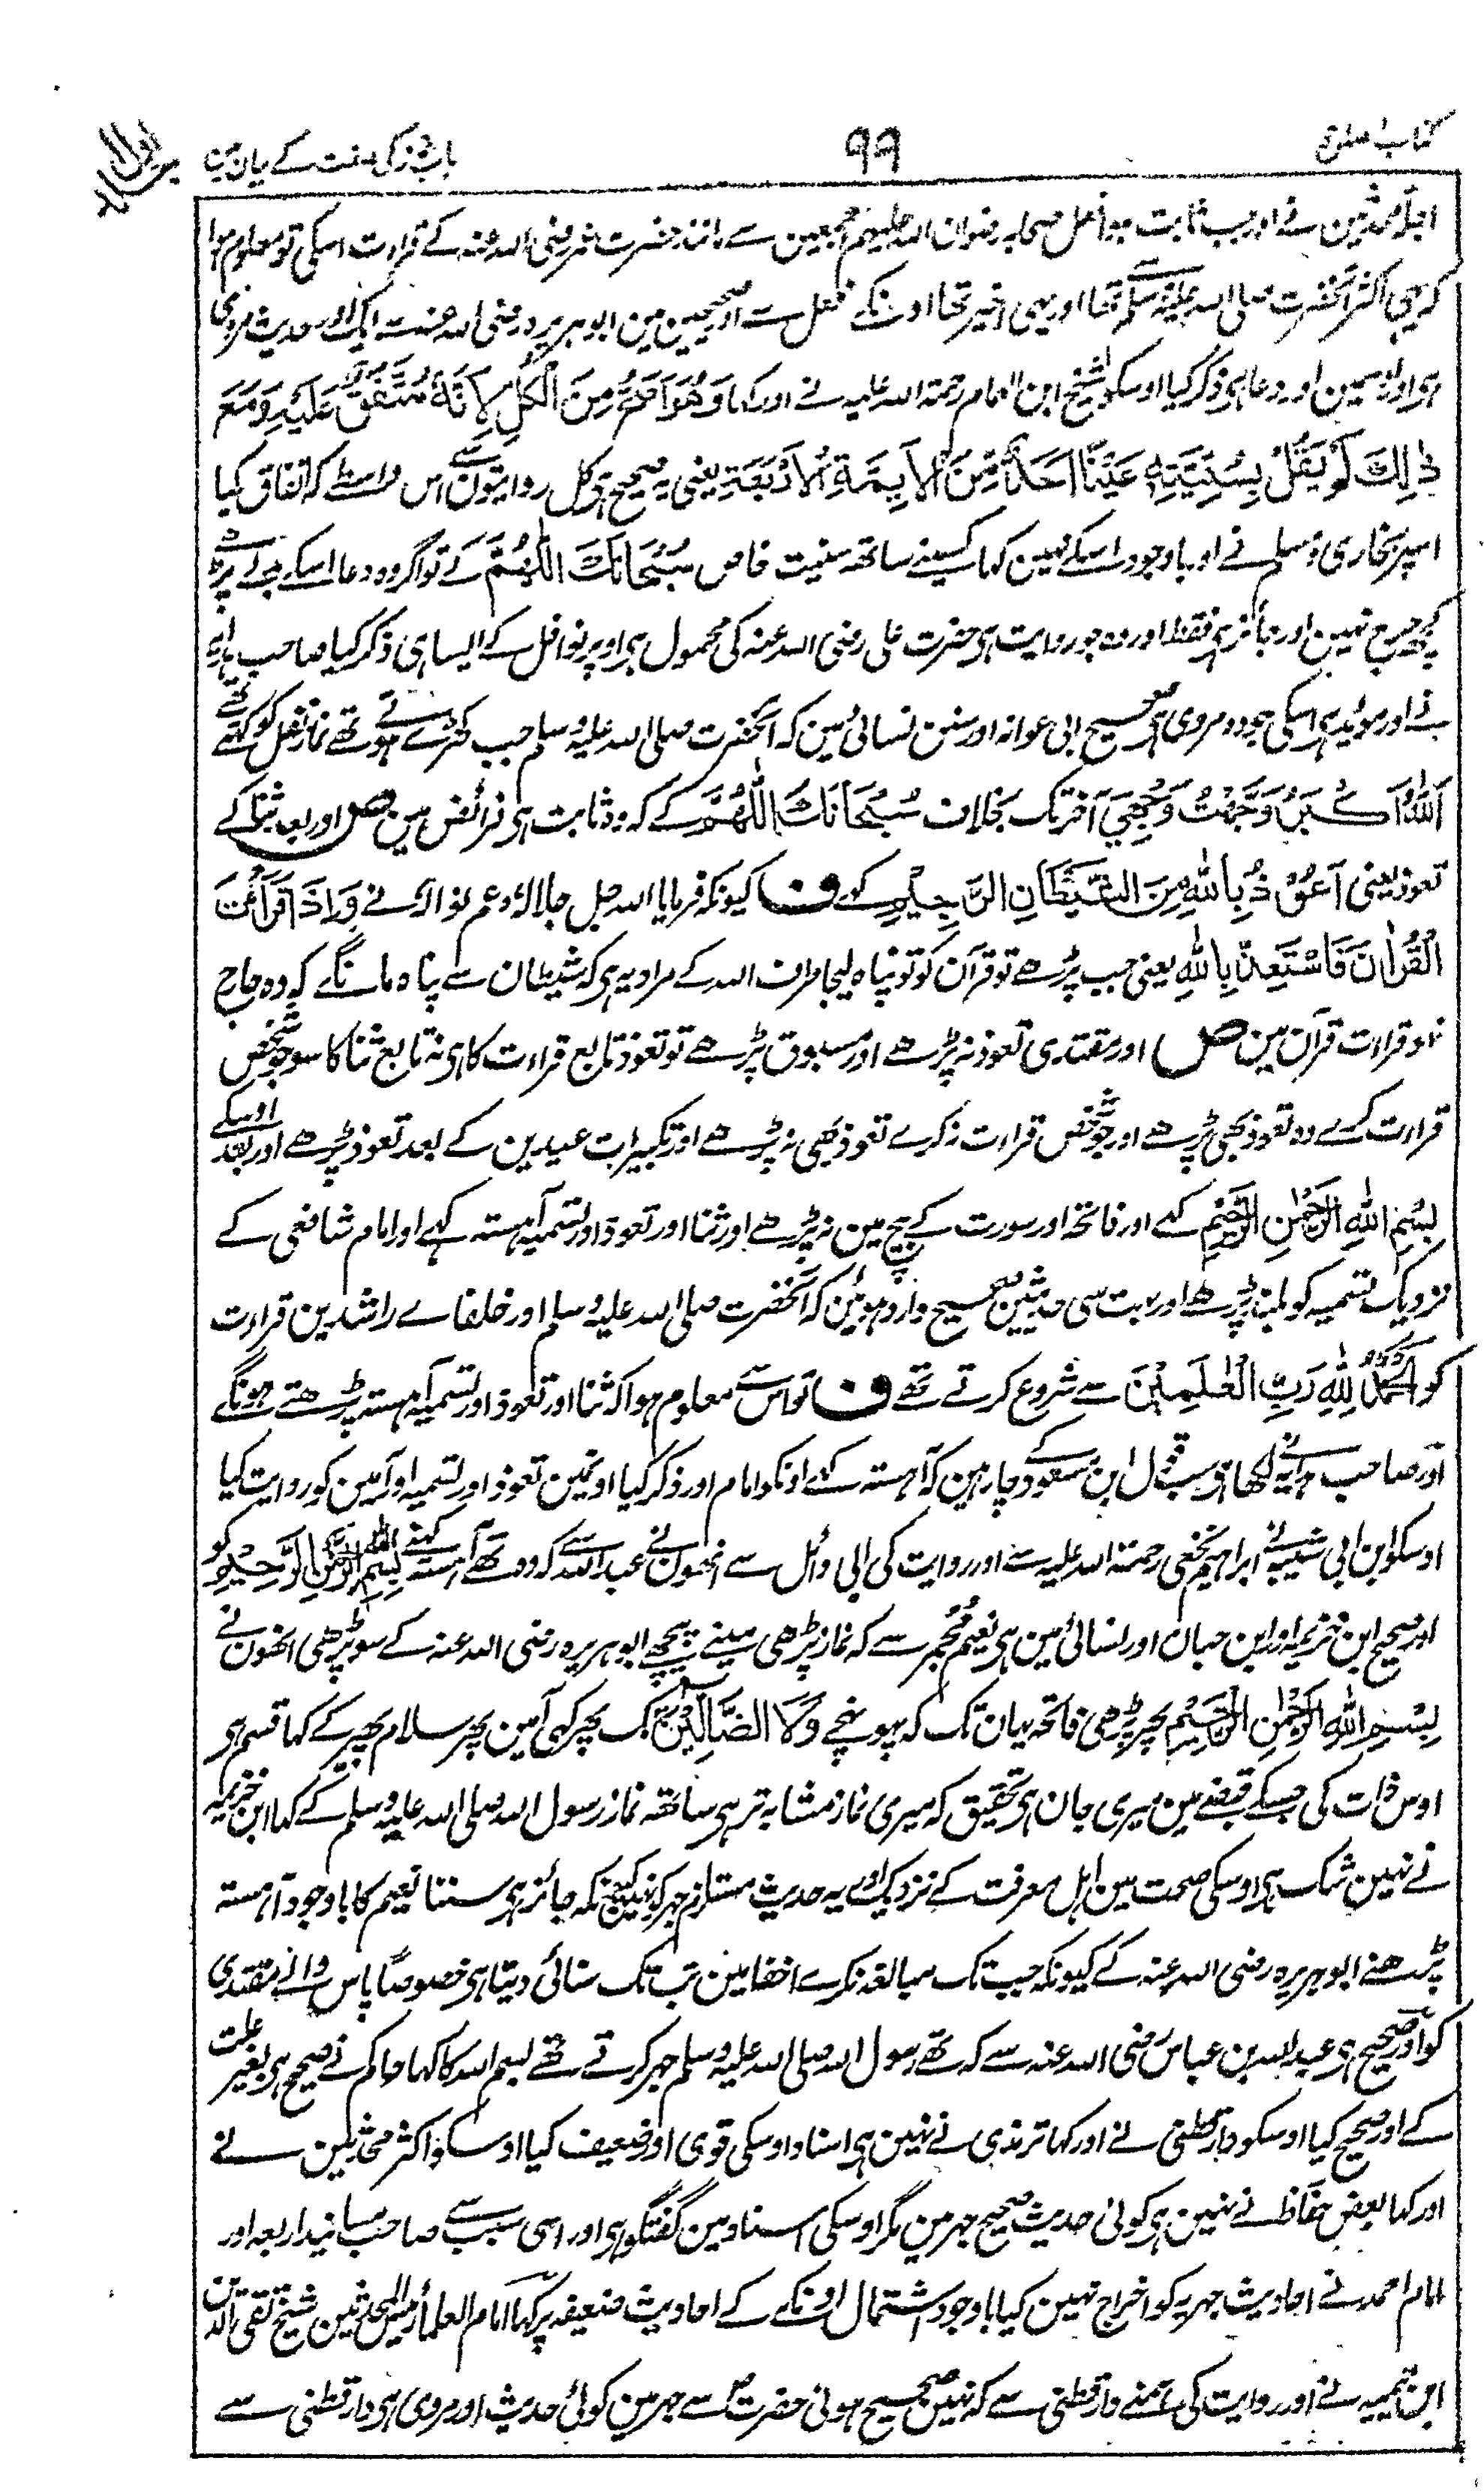 کتاب الصلوٰة
۹۹
باب نماز کی سنت کے بیان مین
اجلّہ محدثین نے اور جب ثابت ہوا فعل صحابہ رضوان اللہ علیہم اجمعین سے مانند حضرت عمر رضی اللہ عنہ کے قرارت اسکی تو معلوم ہوا
کہ یہی اکثر آنحضرت صلی اللہ علیہ وسلم سے تھا اور یہی اخیر تھا اونکے فعل سے اور صحیحین مین ابو ہریرہ رضی اللہ عنہ سے ایک اور حدیث مروی
ہی اور اسمین اور دعا ہی ذکر کیا اوسکو شیخ ابن الہمام رحمۃ اللہ علیہ نے اور کہا وَهُوَ اَصَحُّ مِنَ الْکُلِّ لِاَنَّهٗ مُتَّفَقٌ عَلَیْهِ وَمَعَ
ذٰلِكَ لَمْ یَقُلْ بِسُنِّیَّتِهٖ عَیْنًا اَحَدٌ مِّنَ الْاَیِمَّةِ الْاَرْبَعَةِ یعنی یہ صحیح ہی کل روایتون سے اس واسطے کہ اتفاق کیا
اسپر بخاری و مسلم نے اور باوجود اسکے نہین کہا کسینے ساتھ سنیت خاص سُبْحَانَكَ اللّٰهُمَّ کے تو اگر وہ دعا اسکے بدلے پڑھے
کچھ حرج نہین اور جائز ہی فقط اور وہ جو روایت ہی حضرت علی رضی اللہ عنہ کی محمول ہی اوپر نوافل کے ایسا ہی ذکر کیا صاحب ہدایہ
نے اور موئید ہی اسکی جو وہ مروی ہی صحیح ابی عوانہ اور سنن نسائی مین کہ آنحضرت صلی اللہ علیہ وسلم جب کھڑے ہوتے تھے نماز نفل کو کہتے تھے
اَللّٰهُ اَکْبَرُ وَجَّهْتُ وَجْهِیَ آخر تک بخلاف سُبْحَانَكَ اللّٰهُمَّ کے کہ وہ ثابت ہی فرائض مین ص اور بعد ثنا کے
تعوذ یعنی اَعُوْذُ بِاللّٰهِ مِنَ الشَّیْطَانِ الرَّجِیْمِ کہے ف کیونکہ فرمایا اللہ جل جلالہ وعم نوالہ نے وَاِذَا قَرَاْتَ
الْقُرْاٰنَ فَاسْتَعِذْ بِاللّٰهِ یعنی جب پڑھے تو قرآن کو تو پناہ لیجا طرف اللہ کے مراد یہ ہی کہ شیطان سے پناہ مانگے کہ وہ حارج
نہو قرارت قرآن مین ص اور مقتدی تعوذ نہ پڑھے اور مسبوق پڑھے تو تعوذ تابع قرارت کا ہی نہ تابع ثنا کا سو جو شخص
قرارت کرے وہ تعوذ بھی پڑھے اور جو شخص قرارت نہ کرے تعوذ بھی نہ پڑھے اور تکبیرات عیدین کے بعد تعوذ پڑھے اور بعد اوسکے
بِسْمِ اللّٰهِ الرَّحْمٰنِ الرَّحِیْمِ کہے اور فاتحہ اور سورت کے بیچ مین نہ پڑھے اور ثنا اور تعوذ اور تسمیہ آہستہ کہے اور امام شافعی کے
نزدیک تسمیہ کو بلند پڑھے اور بہت سی حدیثین صحیح وارد ہوئین کہ آنحضرت صلی اللہ علیہ وسلم اور خلفاے راشدین قرارت
کو اَلْحَمْدُ لِلّٰهِ رَبِّ الْعٰلَمِیْنَ سے شروع کرتے تھے ف تو اس سے معلوم ہوا کہ ثنا اور تعوذ اور تسمیہ آہستہ پڑھتے ہونگے
اور صاحب ہدایہ نے لکھا ہی بسبب قول ابن مسعود کے چار ہین کہ آہستہ کہے اونکو امام اور ذکر کیا اونمین تعوذ اور تسمیہ اور آمین کو روایت کیا
اوسکو ابن ابی شیبہ نے ابراہیم نخعی رحمۃ اللہ علیہ سے اور روایت کی ابی وائل سے انھون نے عبد اللہ سے کہ وہ تھے آہستہ کہتے بِسْمِ اللّٰهِ الرَّحْمٰنِ الرَّحِیْمِ کو
اور صحیح ابن خزیمہ اور ابن حبان اور نسائی مین ہی نعیم مُجْمِر سے کہ نماز پڑھی مینے پیچھے ابو ہریرہ رضی اللہ عنہ کے سو پڑھی انھون نے
بِسْمِ اللّٰهِ الرَّحْمٰنِ الرَّحِیْمِ پھر پڑھی فاتحہ یہان تک کہ پہونچے وَلَا الضَّالِّیْنَ تک پھر کہی آمین پھر سلام پھیر کے کہا قسم ہی
اوس ذات کی جسکے قبضے مین میری جان ہی تحقیق کہ میری نماز مشابہ تر ہی ساتھ نماز رسول اللہ صلی اللہ علیہ وسلم کے کہا ابن خزیمہ
نے نہین شک ہی اوسکی صحت مین اہل معرفت کے نزدیک اور یہ حدیث مستلزم جہر کو نہین کیونکہ جائز ہی سننا نعیم کا باوجود آہستہ
پڑھنے ابو ہریرہ رضی اللہ عنہ کے کیونکہ جب تک مبالغہ نکرے اخفا مین تب تک سنائی دیتا ہی خصوصًا پاس والے مقتدی
کو اور صحیح ہی عبد اللہ بن عباس رضی اللہ عنہ سے کہ تھے رسول اللہ صلی اللہ علیہ وسلم جہر کرتے تھے بسم اللہ کا کہا حاکم نے صحیح ہی بغیر علت
کے اور صحیح کیا اوسکو دارقطنی نے اور کہا ترمذی نے نہین ہی اسناد اوسکی قوی اور ضعیف کیا اوسکو اکثر محدثین نے
اور کہا بعض حفاظ نے نہین ہی کوئی حدیث صحیح جہر مین مگر اوسکی اسناد مین گفتگو ہی اور اسی سبب سے صاحب مسانید اربعہ اور
امام احمد نے احادیث جہریہ کو اخراج نہین کیا باوجود اشتمال اونکے کے احادیث ضعیفہ پر کہا امام العلما رئیس المحدثین شیخ تقی الدین
ابن تیمیہ نے اور روایت کی ہمنے دارقطنی سے کہ نہین صحیح ہوئی حضرت سے جہر مین کوئی حدیث اور مروی ہی دارقطنی سے